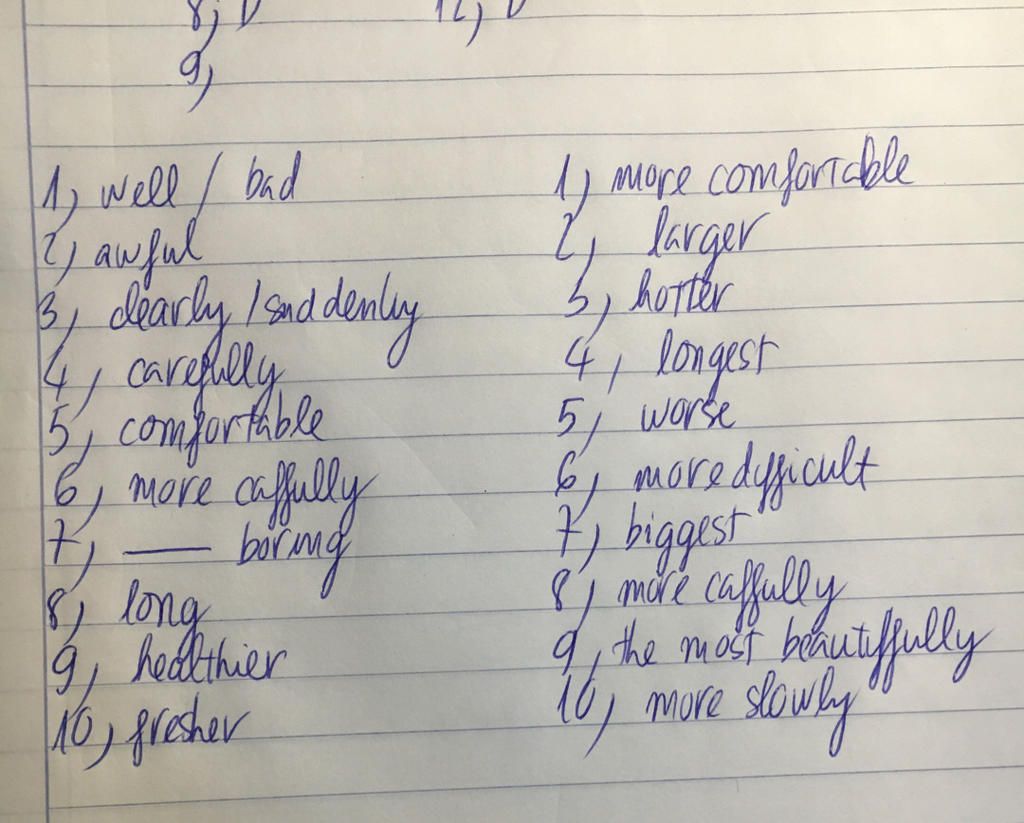 8, D 12, D
9,
1, well / bad
2, awful
3, clearly / suddenly
4, carefully
5, comfortable
6, more caffully
7, —— boring
8, long
9, healthier
10, fresher
1, more comfortable
2, larger
3, hotter
4, longest
5, worse
6, more dyfficult
7, biggest
8, more caffully
9, the most beautiffully
10, more slowly